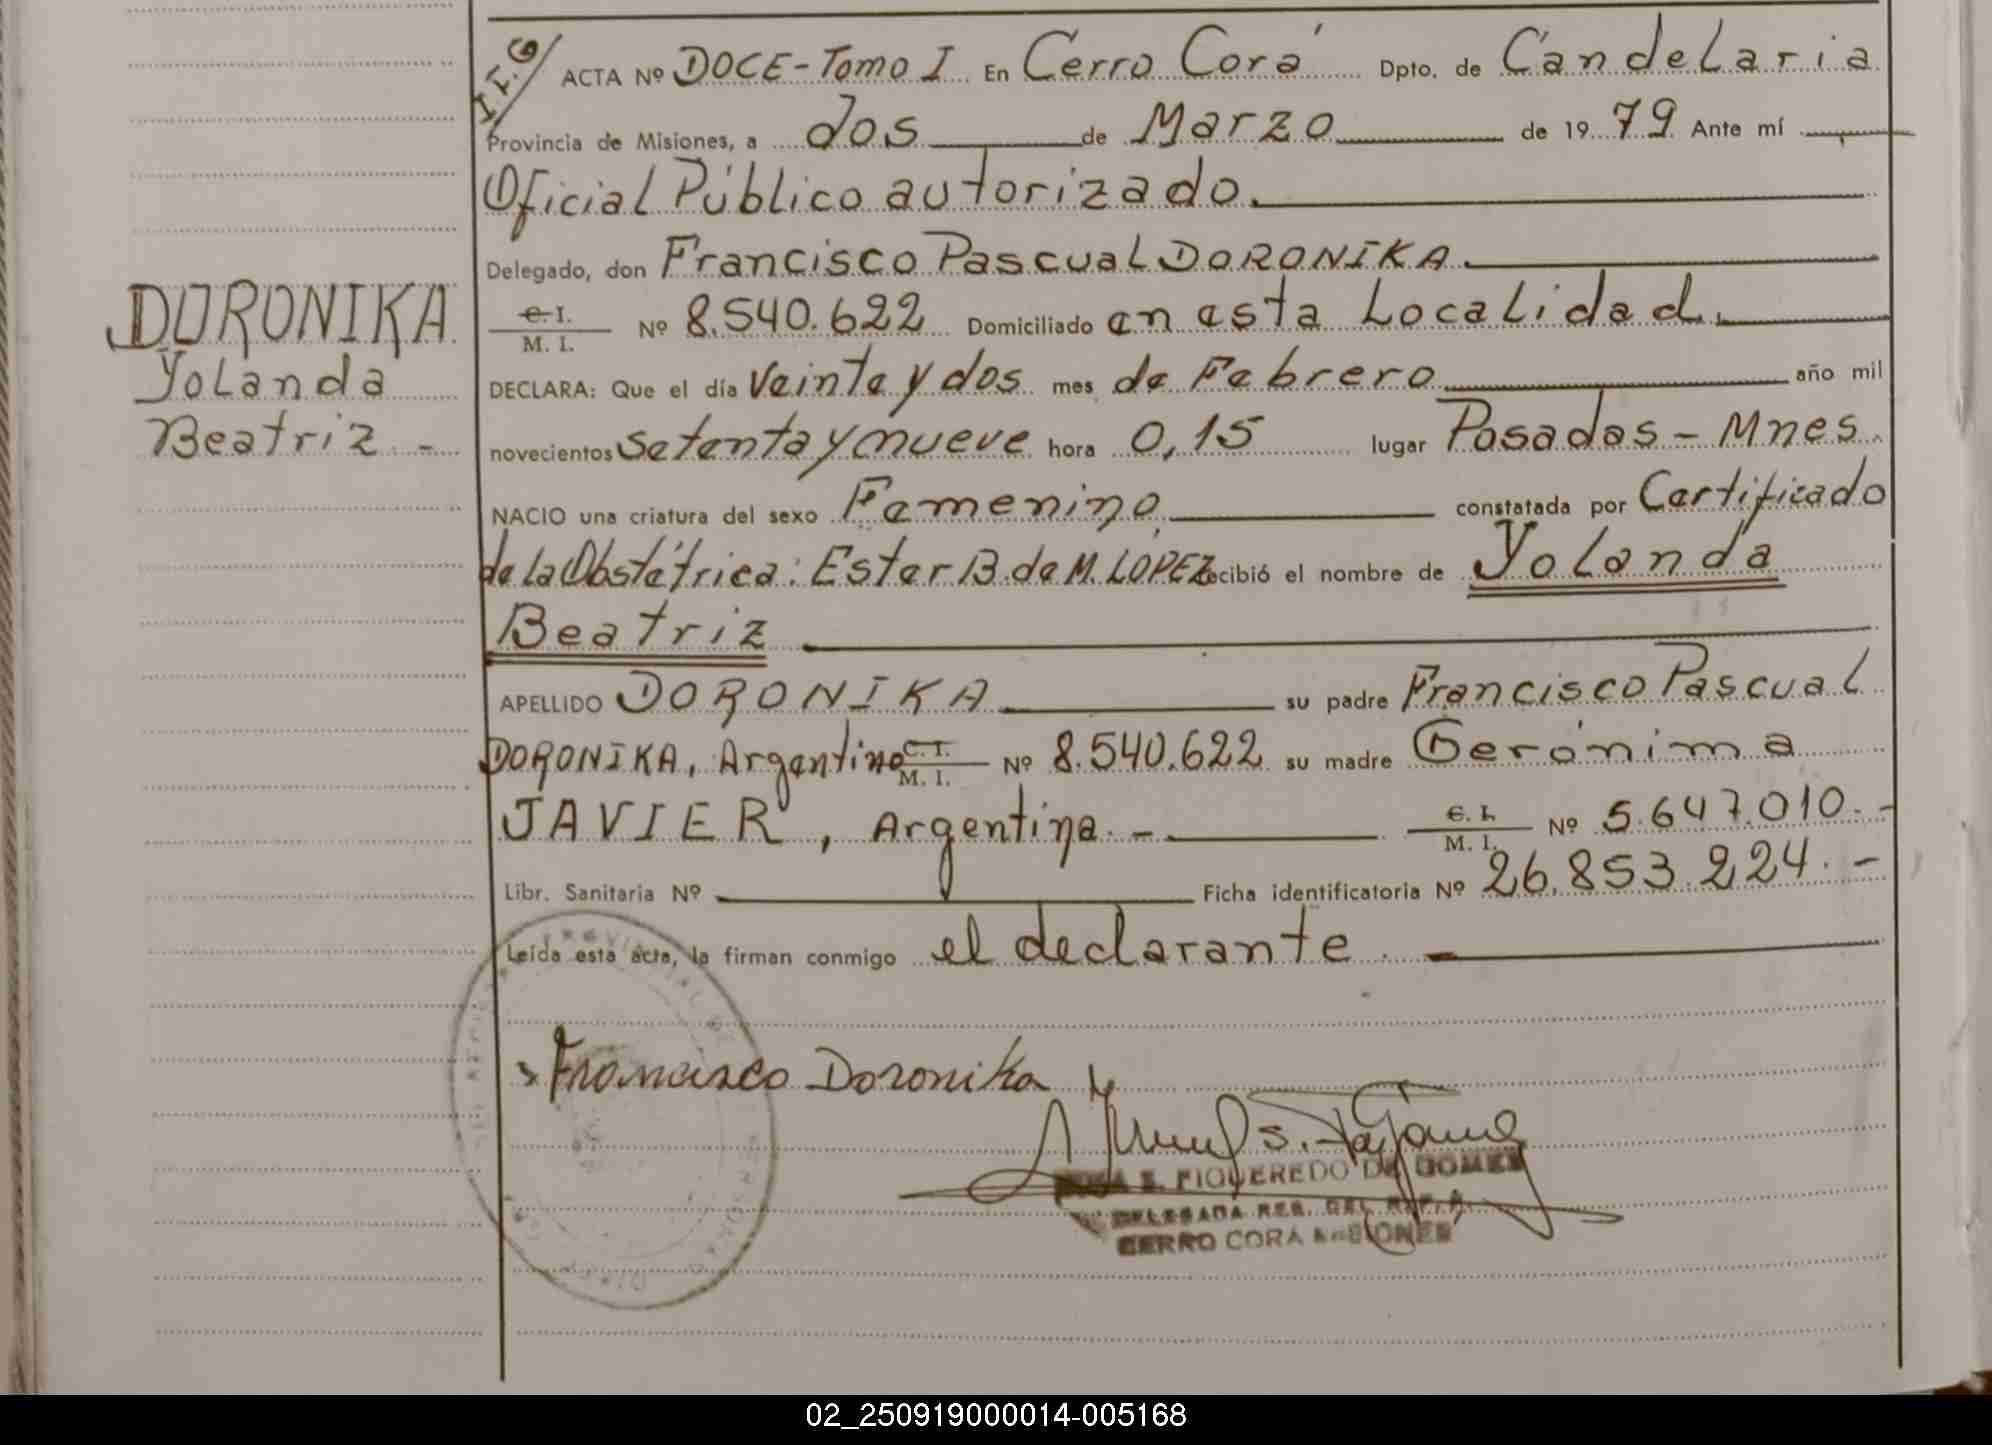 I.F.G/
ACTA Nº DOCE-Tomo I En Cerro Corá Dpto. de Candelaria
Provincia de Misiones, a dos de Marzo de 1979 Ante mí
Oficial Público autorizado.
Delegado, don Francisco Pascual DORONIKA.
C. I.
M. I. Nº 8.540.622 Domiciliado en esta Localidad.
DECLARA: Que el día veinte y dos mes de Febrero año mil
novecientos setenta y nueve hora 0,15 lugar Posadas - Mnes.
NACIO una criatura del sexo Femenino constatada por Certificado
de la Obstétrica: Ester B. de M. LOPEZ recibió el nombre de Yolanda
Beatriz
APELLIDO DORONIKA su padre Francisco Pascual
DORONIKA, Argentino C. I.
M. I. Nº 8.540.622 su madre Gerónima
JAVIER, Argentina. - C. I.
M. I. Nº 5.647.010.-
Libr. Sanitaria Nº Ficha identificatoria Nº 26.853.224.-
Leída esta acta, la firman conmigo el declarante.
DORONIKA
Yolanda
Beatriz -
Francisco Doronika
E. FIGUEREDO DE GOMEZ
DELEGADA
CERRO CORA MISIONES
02_250919000014-005168